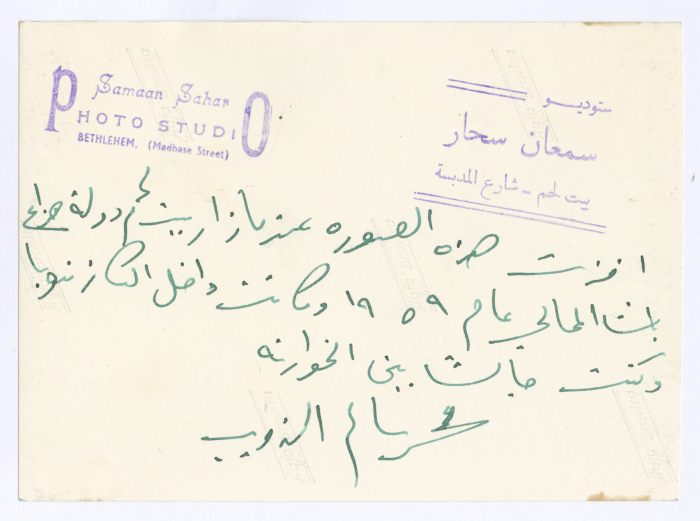 Samaan Sahar
PHOTO STUDIO
BETHLEHEM. (Madbase Street)
ستوديو
سمعان سحار
بيت لحم - شارع المدبسة
اخذت هذه الصوره عندما زار بيت لحم دولة هزاع
باشا المجالي عام ١٩٥٩ وكانت داخل الكازنوبا
وكنت جالسا بين الخوارنه
سالم الذويب